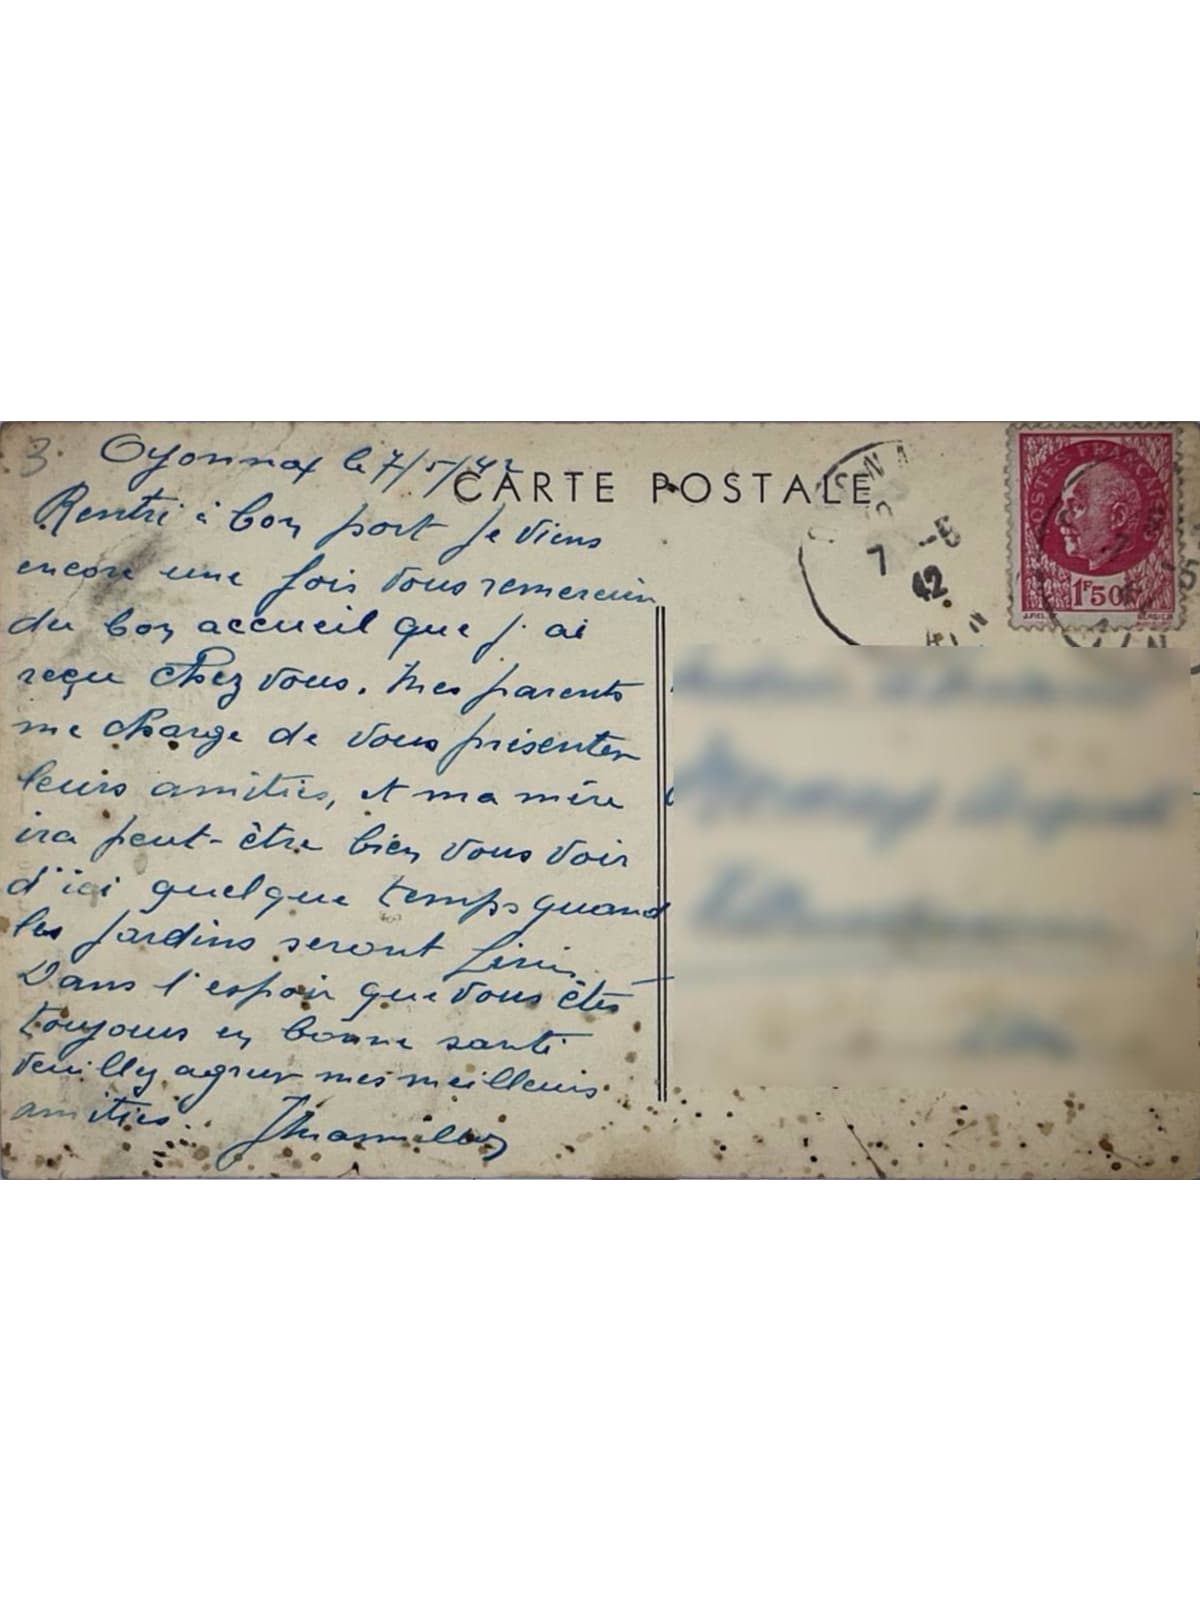 3
Oyonnax le 7/5/42
CARTE POSTALE
Rentré à bon port je viens
encore une fois vous remercier
du bon accueil que j'ai
reçu chez vous. Mes parents
me charge de vous présenter
leurs amitiés, et ma mère
ira peut-être bien vous voir
d'ici quelque temps quand
les jardins seront
Dans l'espoir que vous êtes
toujours en bonne santé
veuillez agréer mes meilleurs
amitiés.
7 -5
42
AIN
POSTES FRANÇAISES
1F50